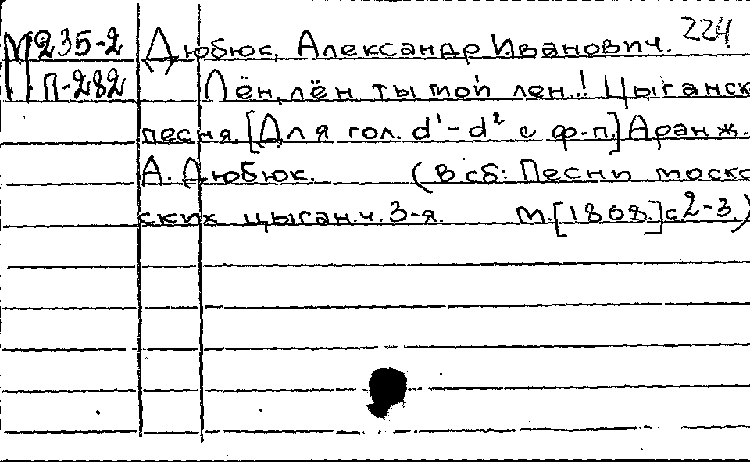 224
М 235-2 Дюбюк, Александр Иванович.
П-282 Лён, лён ты мой лен! Цыганск
песня. [Для гол. d¹-d² с ф-п.] Аранж.
А. Дюбюк. (В сб: Песни моско
ских цыган. ч. 3-я. М. [1808.] с 2-3.)